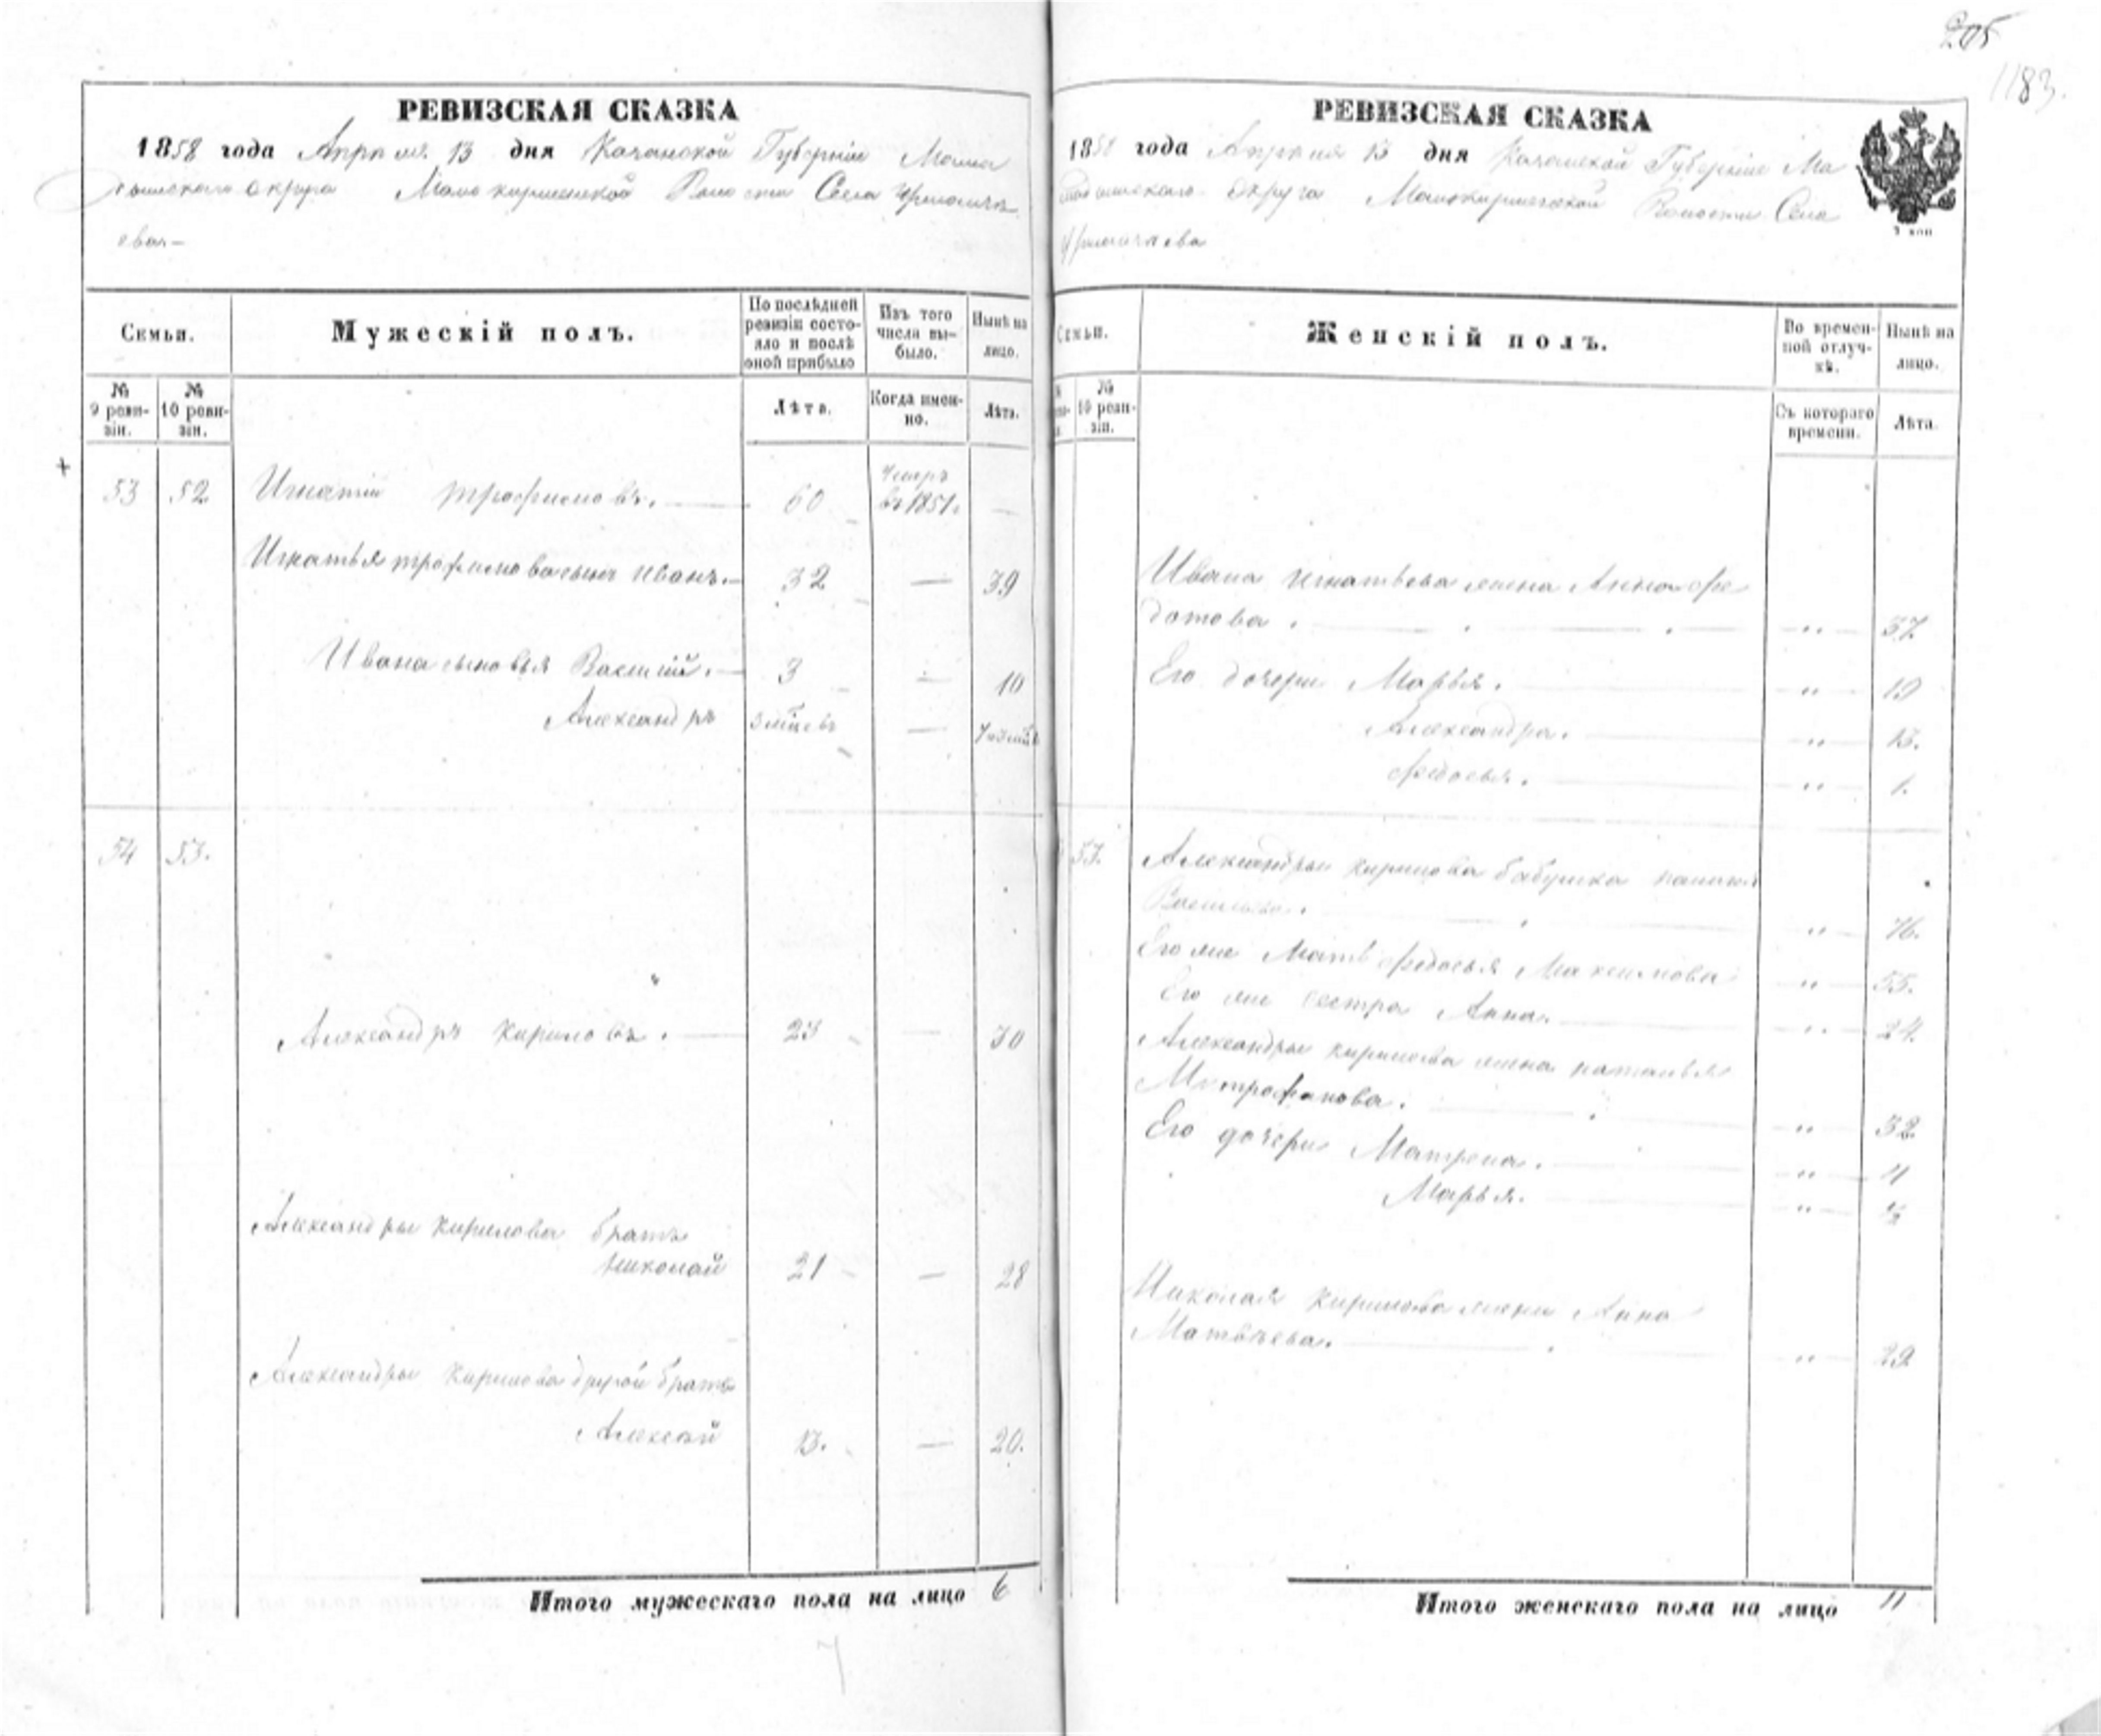 205
1183.
РЕВИЗСКАЯ СКАЗКА
1858 года Апреля 13 дня Казанской Губернiи Мама
дышскаго округа Волости Села
ева—
Семьи.
Мужескiй полъ.
По послѣдней ревизiи состо-
яло и послѣ оной прибыло
Изъ того числа вы-
было.
Нынѣ на лицо.
№ 9 реви-
зiи.
№ 10 реви-
зiи.
Лѣта.
Когда имен-
но.
Лѣта.
53 52 Игнатiй Трофимовъ. 60 умеръ въ 1851. —
Игнатья Трофимова сынъ Иванъ. 32 — 39
Ивана сыновья Василiй. 3 — 10
Александръ —
54 53.
Александръ Кириловъ. 23 — 30
Александры Кирилова братъ
Николай 21 — 28
Александры Кирилова другой братъ
Алексѣй 13. — 20.
Итого мужескаго пола на лицо 6
7
РЕВИЗСКАЯ СКАЗКА
1858 года Апреля 13 дня Казанской Губернiи Ма
мадышскаго Округа Волости Села
3 коп
Семьи.
Женскiй полъ.
Во времен-
ной отлуч-
кѣ.
Нынѣ на лицо.
№ 10 реви-
зiи.
Съ котораго времени.
Лѣта.
Ивана Игнатьева жена Анна Фе
дотова. „ 37.
Его дочери Марья. „ 19
Александра. „ 13.
Федосья. „ 1.
53. Александры Кирилова бабушка
Васильева. „ 76.
Его же мать Федосья Максимова „ 55.
Его же сестра Анна. „ 24.
Александры Кирилова жена Наталья
Митрофанова. „ 32
Его дочери Матрена. „ 4
Марья. „ ½
Николая Кирилова жена Анна
Матвѣева. „ 29
Итого женскаго пола на лицо 11